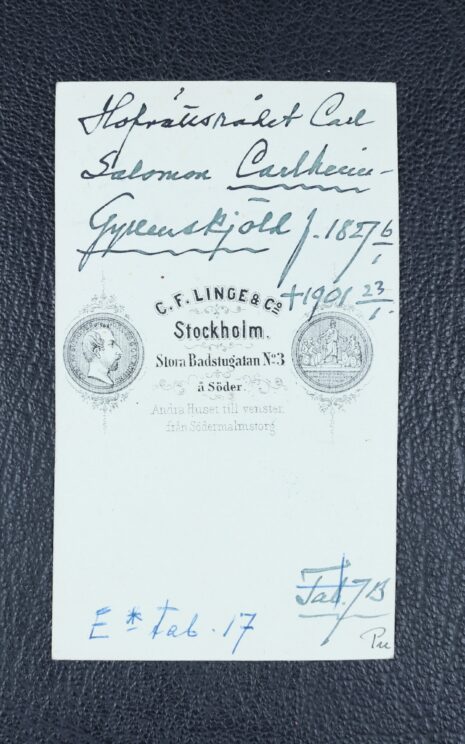 Hofrättsrådet Carl
Salomon Carlheim-
Gyllenskjöld f. 1827 6/1
†1901 23/1.
C. F. LINGE & Co
Stockholm.
Stora Badstugatan No 3
å Söder.
Andra Huset till venster.
från Södermalmstorg
Tab. 7 B
E* tab. 17